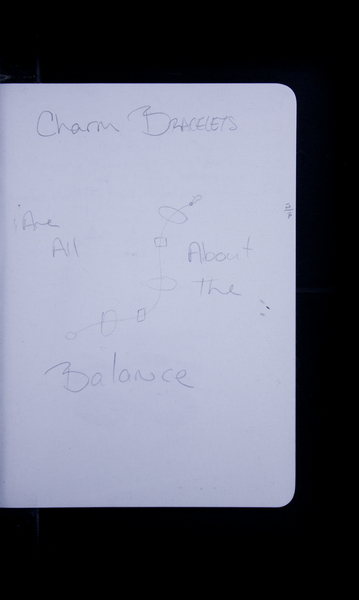 Charm BRACELETS
Are
All
About
the
Balance